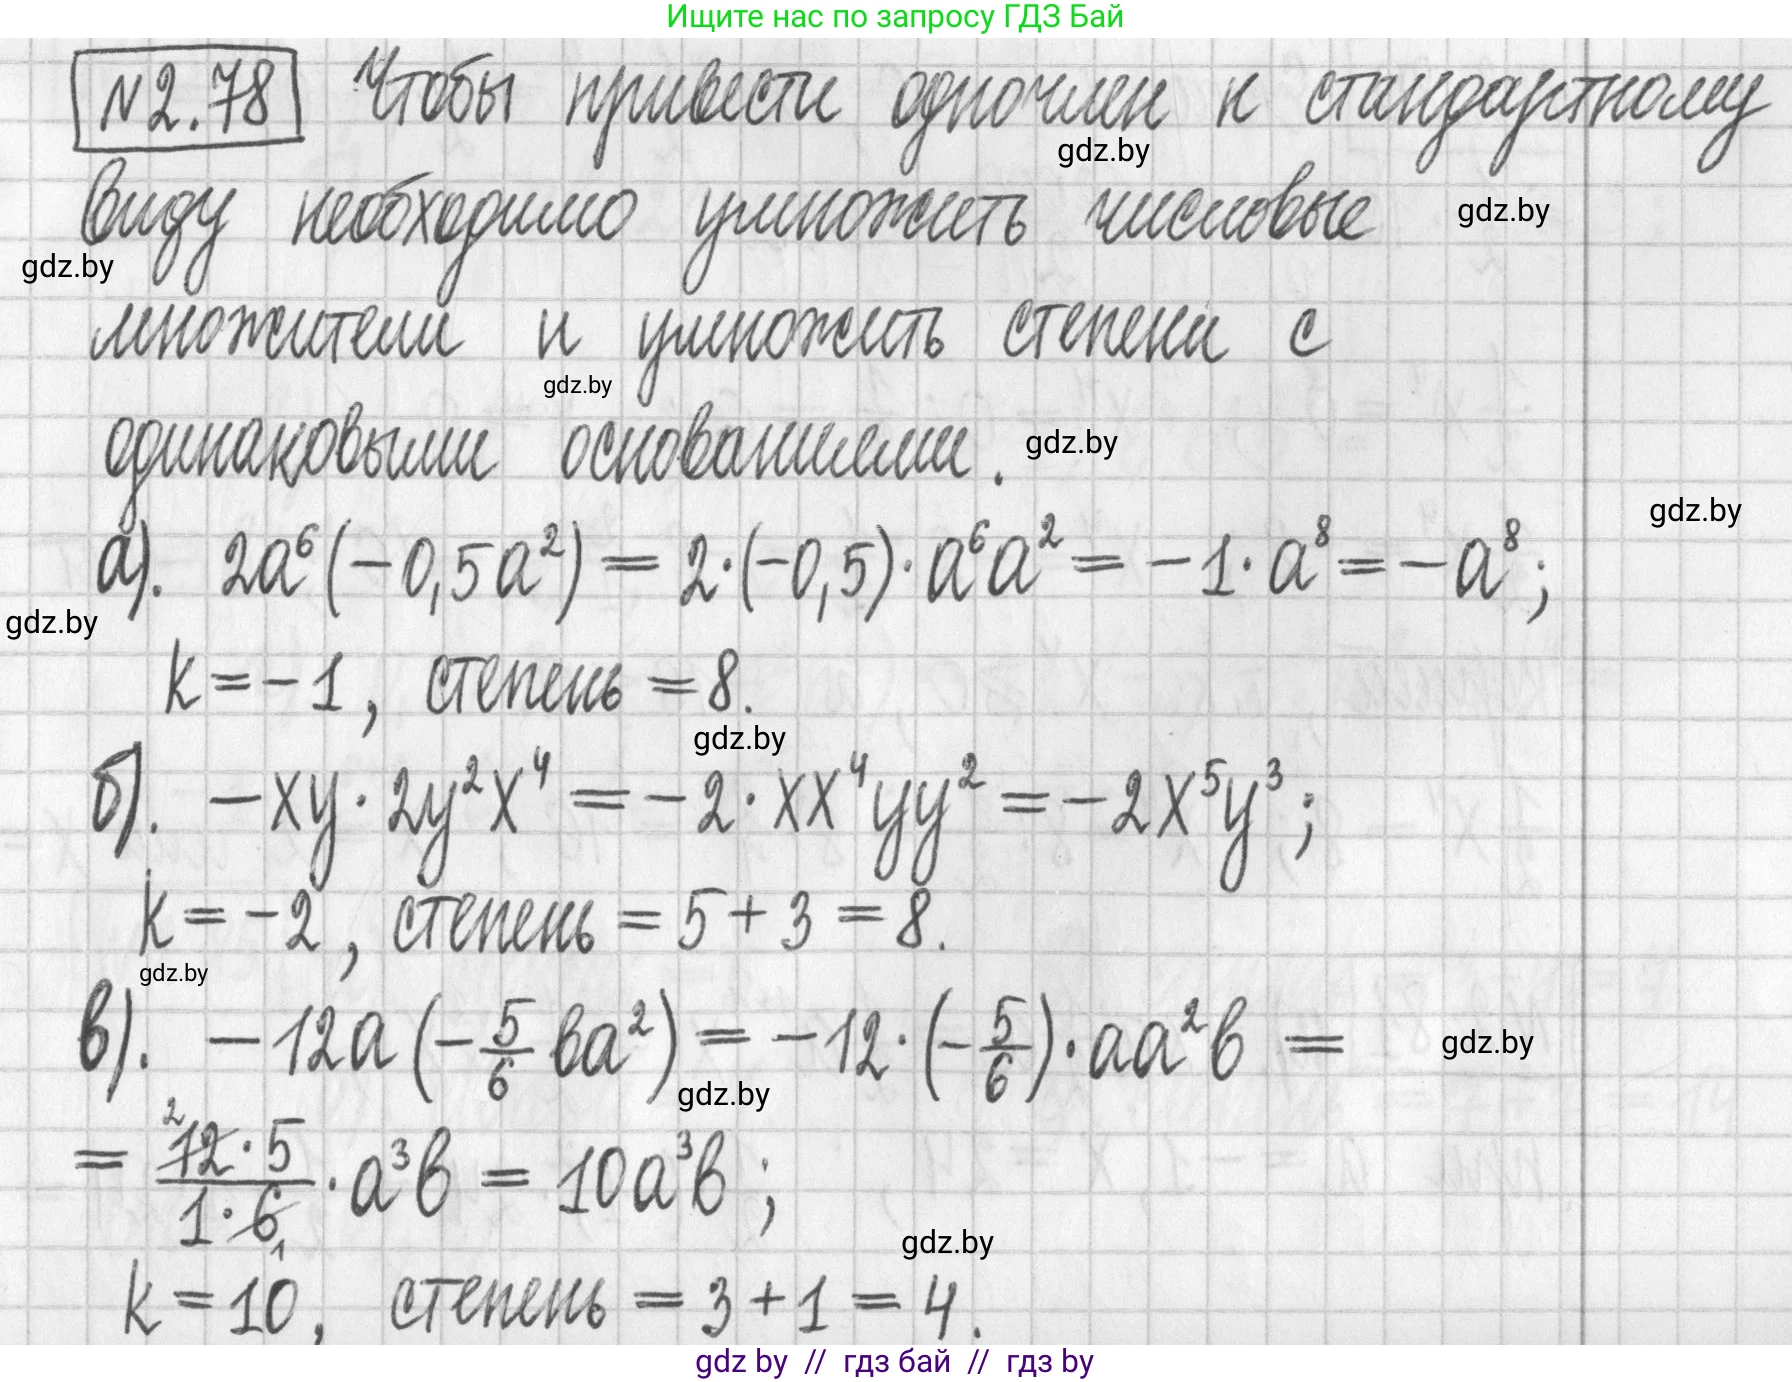 Ищите нас по запросу ГДЗ Бай
N2.78 Чтобы привести одночлен к стандартному
gdz.by
виду необходимо умножить числовые
gdz.by
gdz.by
множители и умножить степени с
gdz.by
одинаковыми основаниями.
gdz.by
gdz.by
а). 2a⁶(-0,5a²) = 2·(-0,5)·a⁶a² = -1·a⁸ = -a⁸;
gdz.by
k = -1, степень = 8.
gdz.by
б). -xy·2y²x⁴ = -2·xx⁴yy² = -2x⁵y³;
k = -2, степень = 5 + 3 = 8.
gdz.by
в). -12a(-5/6 ba²) = -12·(-5/6)·aa²b =
gdz.by
gdz.by
= 12²·5/1·6₁ ·a³b = 10a³b;
gdz.by
k = 10, степень = 3 + 1 = 4.
gdz by // гдз бай // гдз by